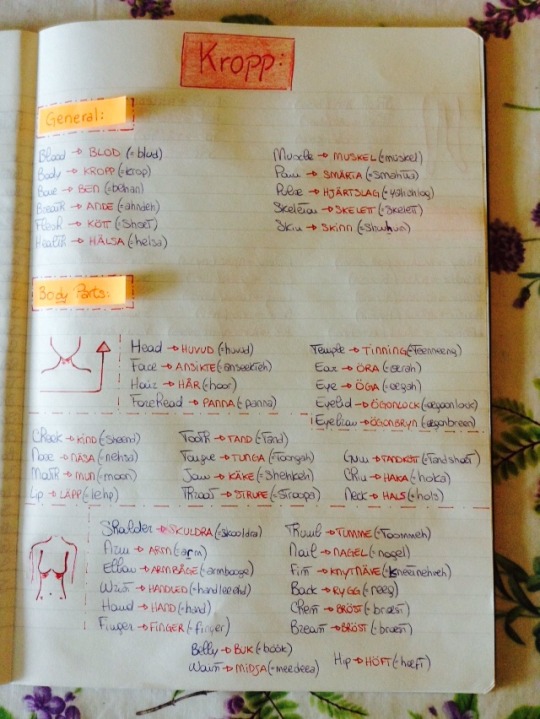 Kropp:
General:
Blood → BLOD (=blud)
Body → KROPP (=krop)
Bone → BEN (=behan)
Breath → ANDE (=ahndeh)
Flesh → KÖTT (=shoet)
Health → HÄLSA (=helsa)
Muscle → MUSKEL (=muskel)
Pain → SMÄRTA (=smahta)
Pulse → HJÄRTSLAG
Skeleton → SKELETT (=skelett)
Skin → SKINN
Body Parts:
Head → HUVUD (=huvud)
Face → ANSIKTE (=anseekteh)
Hair → HÅR (=hoor)
Forehead → PANNA (=panna)
Temple → TINNING (=Teenneeng)
Ear → ÖRA (=œrah)
Eye → ÖGA (=œgah)
Eyelid → ÖGONLOCK (=œgoonlock)
Eyebrow → ÖGONBRYN (=œgonbreen)
Cheek → KIND (=sheend)
Nose → NÄSA (=nehsa)
Mouth → MUN (=moon)
Lip → LÄPP (=lehp)
Tooth → TAND (=Tand)
Tongue → TUNGA (=Toongah)
Jaw → KÄKE (=Shehkeh)
Throat → STRUPE (=stroopeh)
Gum → TANDKÖTT (=Tandshoet)
Chin → HAKA (=hoka)
Neck → HALS (=hols)
Shoulder → SKULDRA (=skooldra)
Arm → ARM (=arm)
Elbow → ARMBÅGE (=armbooge)
Wrist → HANDLED (=handleehd)
Hand → HAND (=hand)
Finger → FINGER (=finger)
Thumb → TUMME (=Toommeh)
Nail → NAGEL (=nagel)
Fist → KNYTNÄVE (=kneetnehveh)
Back → RYGG (=reeg)
Chest → BRÖST (=brœst)
Breast → BRÖST (=brœst)
Belly → BUK (=book)
Waist → MIDJA (=meedeea)
Hip → HÖFT (=hœft)